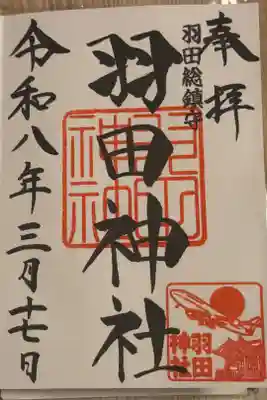 奉拝
羽田総鎮守
羽田神社
羽田神社
令和八年三月十七日
羽田
神社